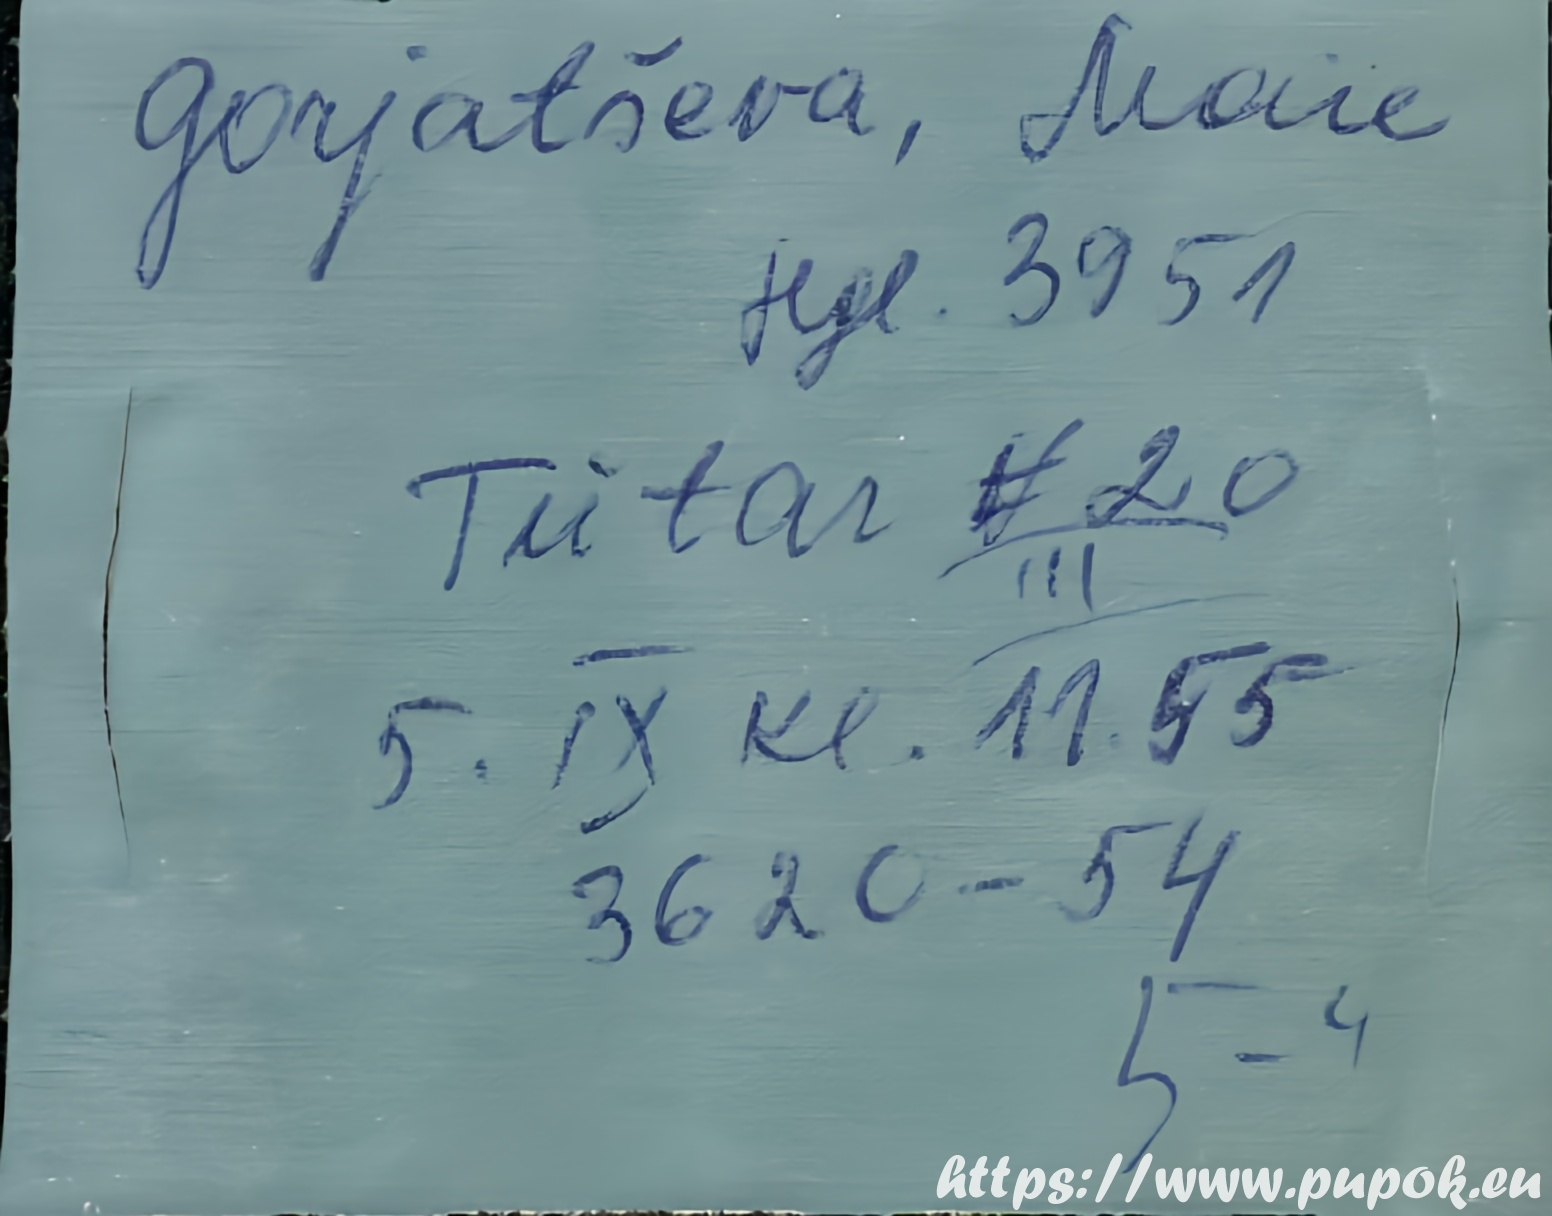 Gorjatševa, Maie
Hgl. 3951
Tütar № 20
III
5. IX kl. 11.55
3620 - 54
5 - 4
https://www.pupok.eu